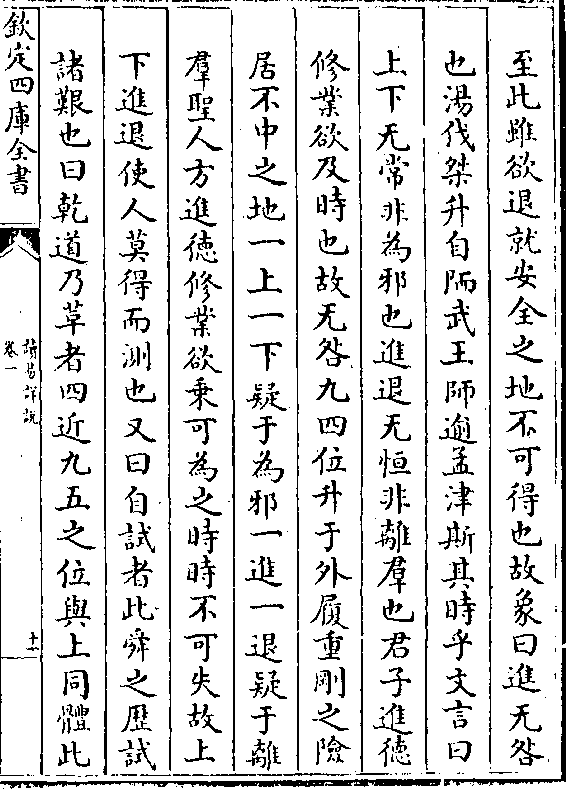 至此雖欲退就安全之地不可得也故象曰進无咎
也湯伐桀升自陑武王師逾孟津斯其時乎文言曰
上下无常非為邪也進退无恒非離羣也君子進徳
修業欲及時也故无咎九四位升于外履重剛之險
居不中之地一上一下疑于為邪一進一退疑于離
羣聖人方進徳修業欲乗可為之時時不可失故上
下進退使人莫得而測也又曰自試者此舜之歴試
諸艱也曰乾道乃革者四近九五之位與上同體此
欽定四庫全書
讀易詳説
卷一
十一